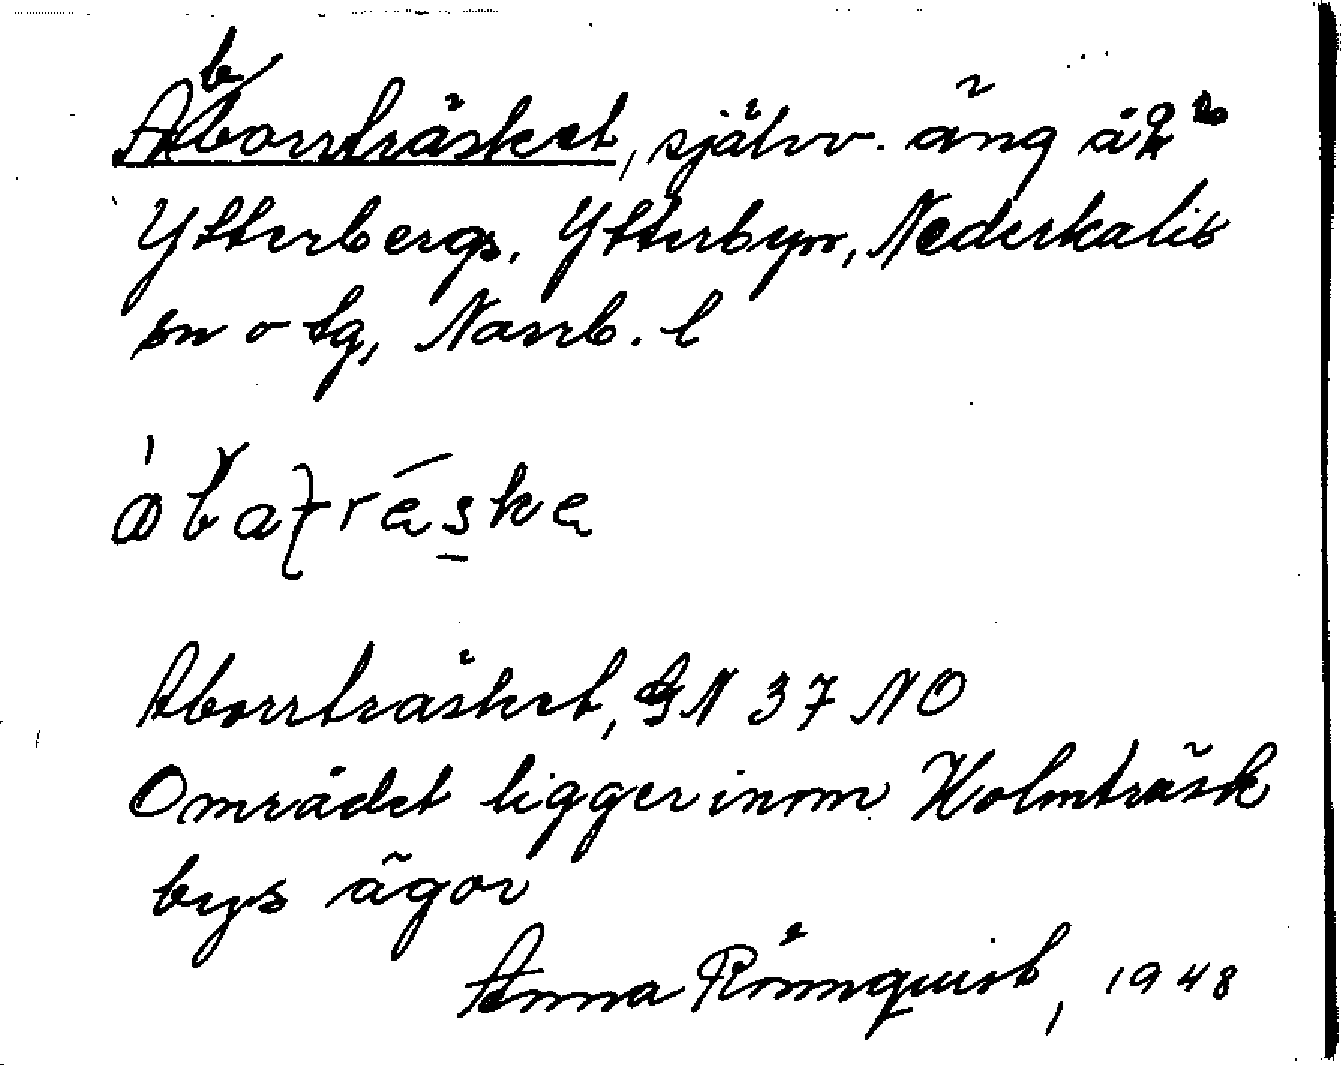 Abborrträsket, självv. äng å
Ytterbergs, Ytterbyn, Nederkalix
sn o tg, Norrb. l
Aborrträsket, GN 37 NO
Området ligger inom Holmträsk
bys ägor
Anna Rönnquist, 1948